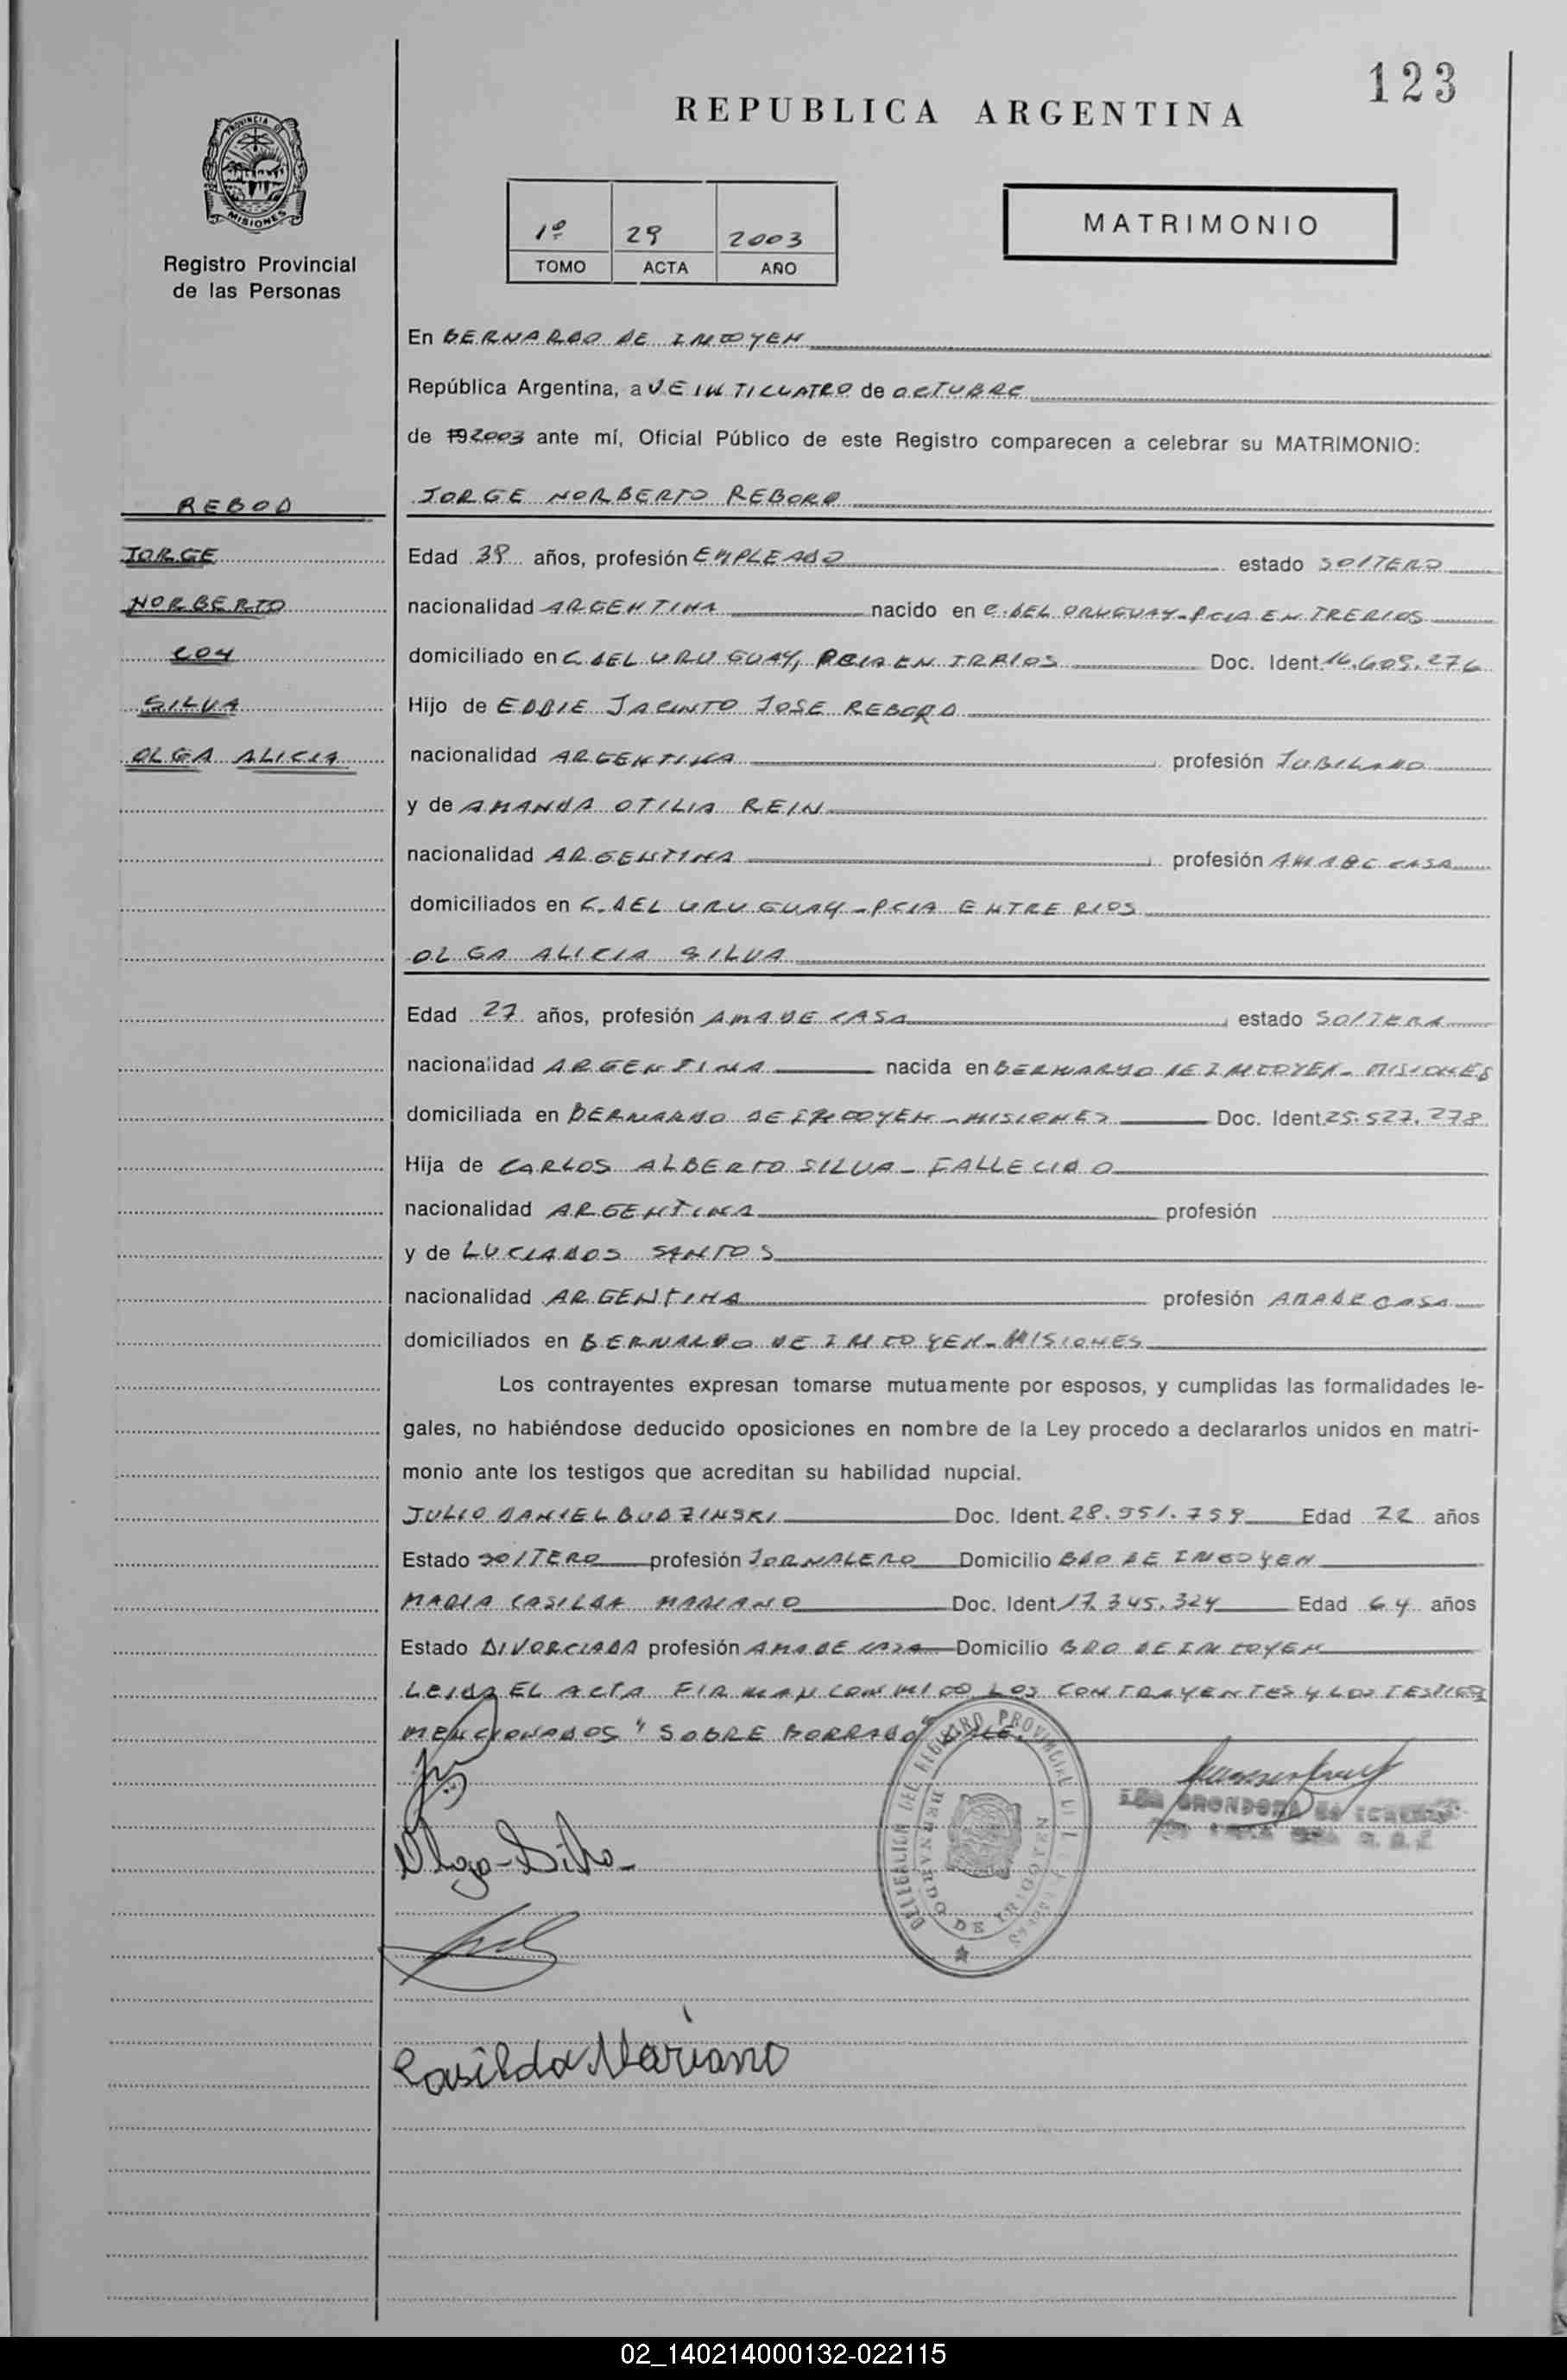 123
REPUBLICA ARGENTINA
PROVINCIA DE
MISIONES
Registro Provincial
de las Personas
1º 29 2003
TOMO ACTA AÑO
MATRIMONIO
En BERNARDO DE IRIGOYEN
República Argentina, a VEINTICUATRO de OCTUBRE
de 192003 ante mí, Oficial Público de este Registro comparecen a celebrar su MATRIMONIO:
REBOD
JORGE NORBERTO REBORD
JORGE
Edad 39 años, profesión EMPLEADO estado SOLTERO
NORBERTO
nacionalidad ARGENTINA nacido en C. DEL URUGUAY-PCIA ENTRERIOS
CON
domiciliado en C. DEL URUGUAY, PCIA EN TRRIOS Doc. Ident. 16.609.276
SILVA
Hijo de EDDIE JACINTO JOSE REBORD
OLGA ALICIA
nacionalidad ARGENTINA profesión JUBILADO
y de AMANDA OTILIA REIN
nacionalidad ARGENTINA profesión AMA DE CASA
domiciliados en C. DEL URUGUAY-PCIA ENTRE RIOS
OLGA ALICIA SILVA
Edad 27 años, profesión AMA DE CASA estado SOLTERA
nacionalidad ARGENTINA nacida en BERNARDO DE IRIGOYEN-MISIONES
domiciliada en BERNARDO DE IRIGOYEN-MISIONES Doc. Ident 25.527.278
Hija de CARLOS ALBERTO SILVA-FALLECIDO
nacionalidad ARGENTINA profesión
y de LUCIA DOS SANTOS
nacionalidad ARGENTINA profesión AMA DE CASA
domiciliados en BERNARDO DE IRIGOYEN-MISIONES
Los contrayentes expresan tomarse mutuamente por esposos, y cumplidas las formalidades le-
gales, no habiéndose deducido oposiciones en nombre de la Ley procedo a declararlos unidos en matri-
monio ante los testigos que acreditan su habilidad nupcial.
JULIO DANIEL BUDZINSKI Doc. Ident. 28.951.759 Edad 22 años
Estado SOLTERO profesión JORNALERO Domicilio BDO DE IRIGOYEN
MARIA CASILDA MARIANO Doc. Ident 17.345.324 Edad 64 años
Estado DIVORCIADA profesión AMA DE CASA Domicilio BDO DE IRIGOYEN
LEIDA EL ACTA FIRMAN CONMIGO LOS CONTRAYENTES Y LOS TESTIGOS
MENCIONADOS "SOBRE BORRADO" VALE.
DELEGACION DEL REGISTRO PROVINCIAL DE LAS PERSONAS
BERNARDO DE IRIGOYEN
Olga-Silva-
Casilda Mariano
02_140214000132-022115